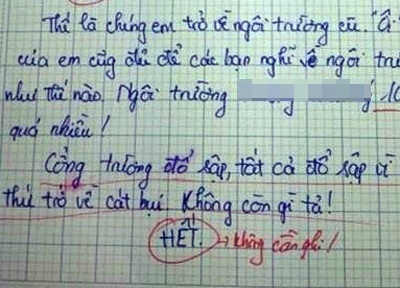 Thế là chúng em trở về ngôi trường cũ. "Ôi"
của em cũg đủ để các bạn nghĩ về ngôi trư
như thế nào. Ngôi trường 10
quá nhiều!
Cổng trường đổ sập, tất cả đổ sập vì
thứ trở về cát bụi. Không còn gì tả!
HẾT. → không cần ghi!